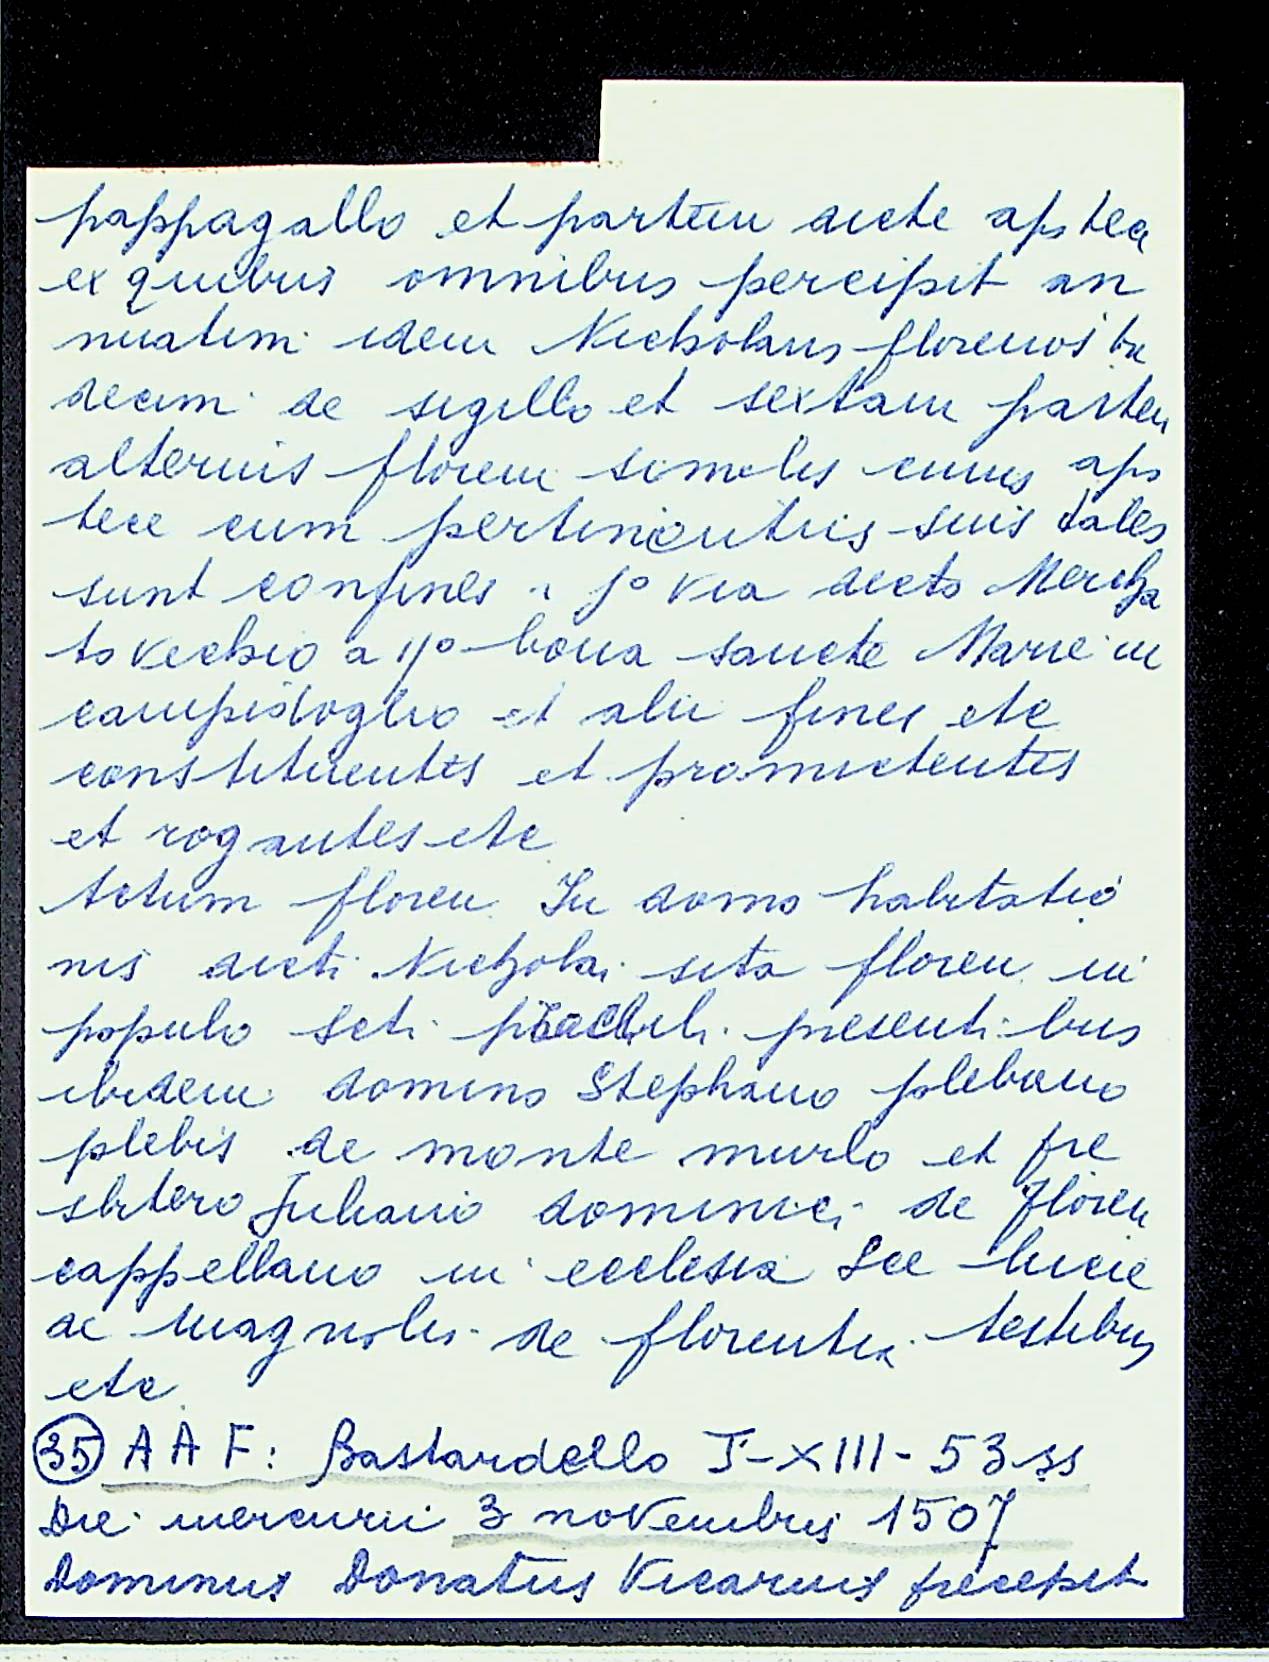 pappagallo et partem dicte apotec
ex quibus omnibus percipit an
nuatim idem Nicholaus florenos tre
decim de sigillo et sextam partem
alterius floreni similis cuius apo
tece cum pertinentiis suis tales
sunt confines a jº via dicto Mercha
to vechio a ijº bona sancte Marie in
campidoglio et alii fines etc
constituentes et promictentes
et rogantes etc
Actum floren. In domo habitatio
nis dicti Nicholai sita floren. in
populo scti presentibus
ibidem domino Stephano plebano
plebis de monte murlo et pre
sbitero Juliano dominici de Floren
cappellano in ecclesia Sce Lucie
de magnolis de florentia testibus
etc
35 AAF: Bastardello I-XIII-53 ss
Die mercurii 3 novembris 1507
Dominus Donatus Vicarius precepit